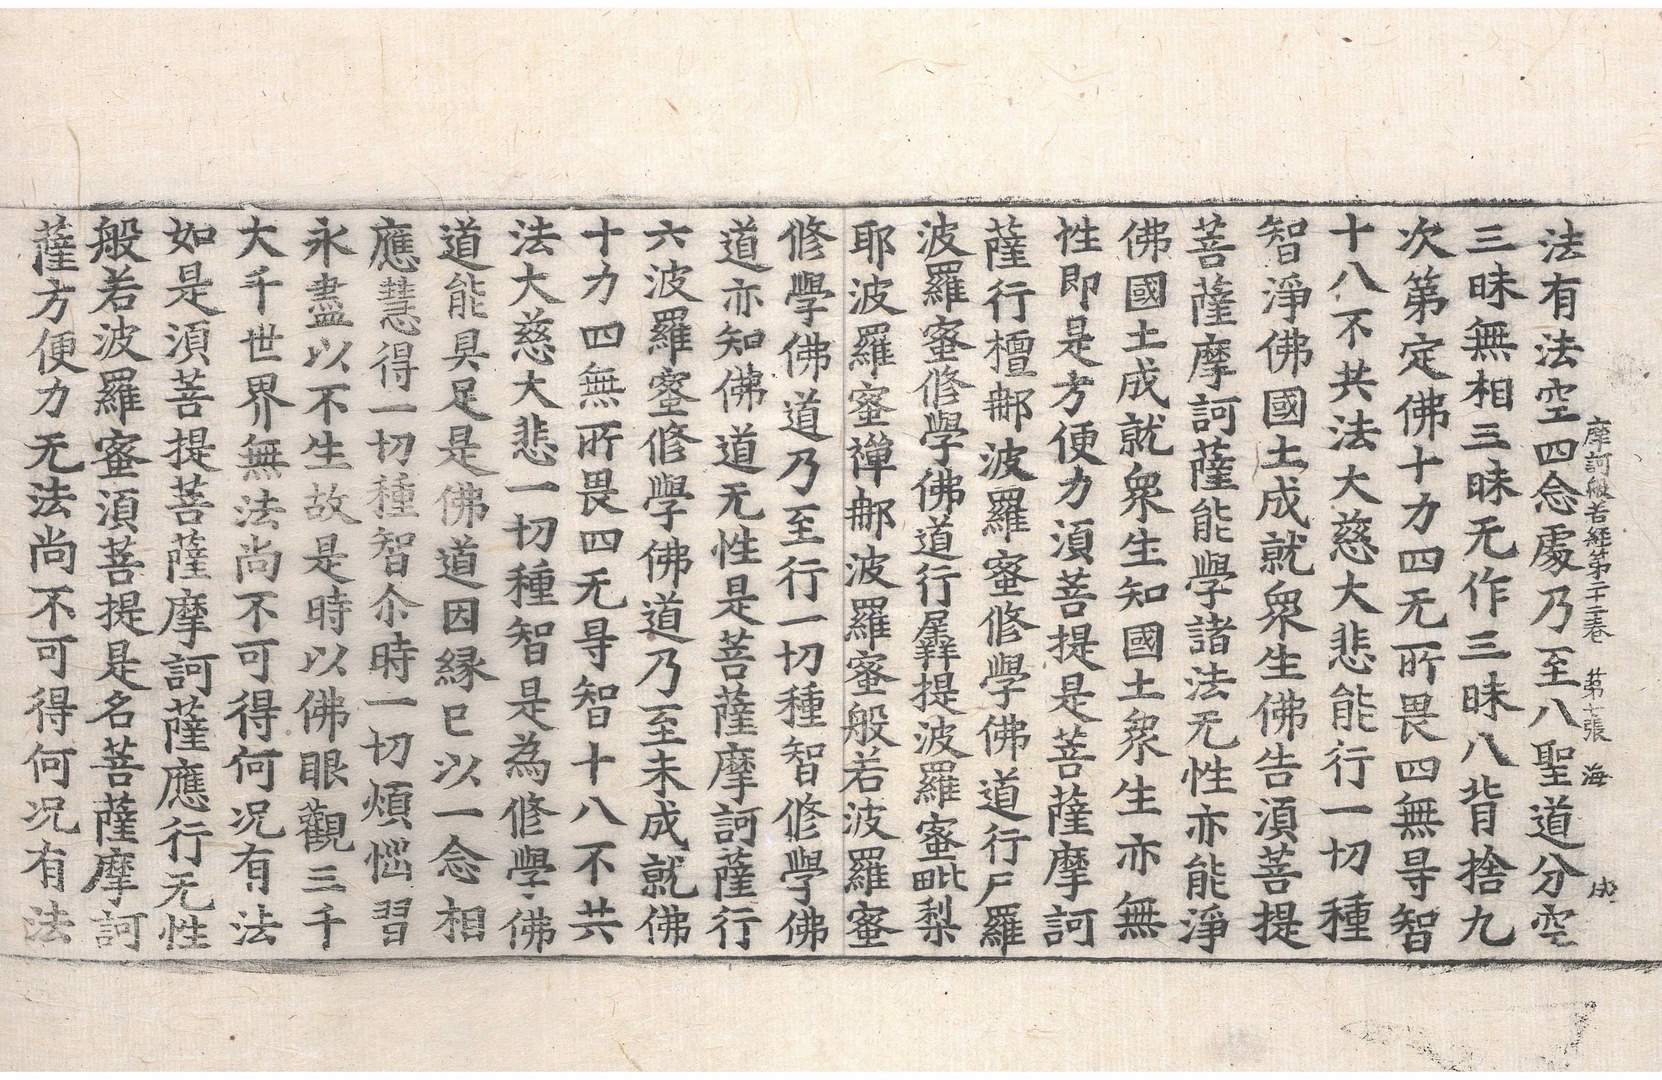 摩訶般若經第二十三卷 第七張 海 成
法有法空四念處乃至八聖道分空
三昧無相三昧无作三昧八背捨九
次第定佛十力四无所畏四無㝵智
十八不共法大慈大悲能行一切種
智淨佛國土成就衆生佛告湏菩提
菩薩摩訶薩能學諸法无性亦能淨
佛國土成就衆生知國土衆生亦無
性即是方便力湏菩提是菩薩摩訶
薩行檀那波羅蜜修學佛道行尸羅
波羅蜜修學佛道行羼提波羅蜜毗梨
耶波羅蜜禪那波羅蜜般若波羅蜜
修學佛道乃至行一切種智修學佛
道亦知佛道无性是菩薩摩訶薩行
六波羅蜜修學佛道乃至未成就佛
十力四無所畏四无㝵智十八不共
法大慈大悲一切種智是為修學佛
道能具足是佛道因緣已以一念相
應慧得一切種智尒時一切煩惱習
永盡以不生故是時以佛眼觀三千
大千世界無法尚不可得何况有法
如是湏菩提菩薩摩訶薩應行无性
般若波羅蜜湏菩提是名菩薩摩訶
薩方便力无法尚不可得何况有法